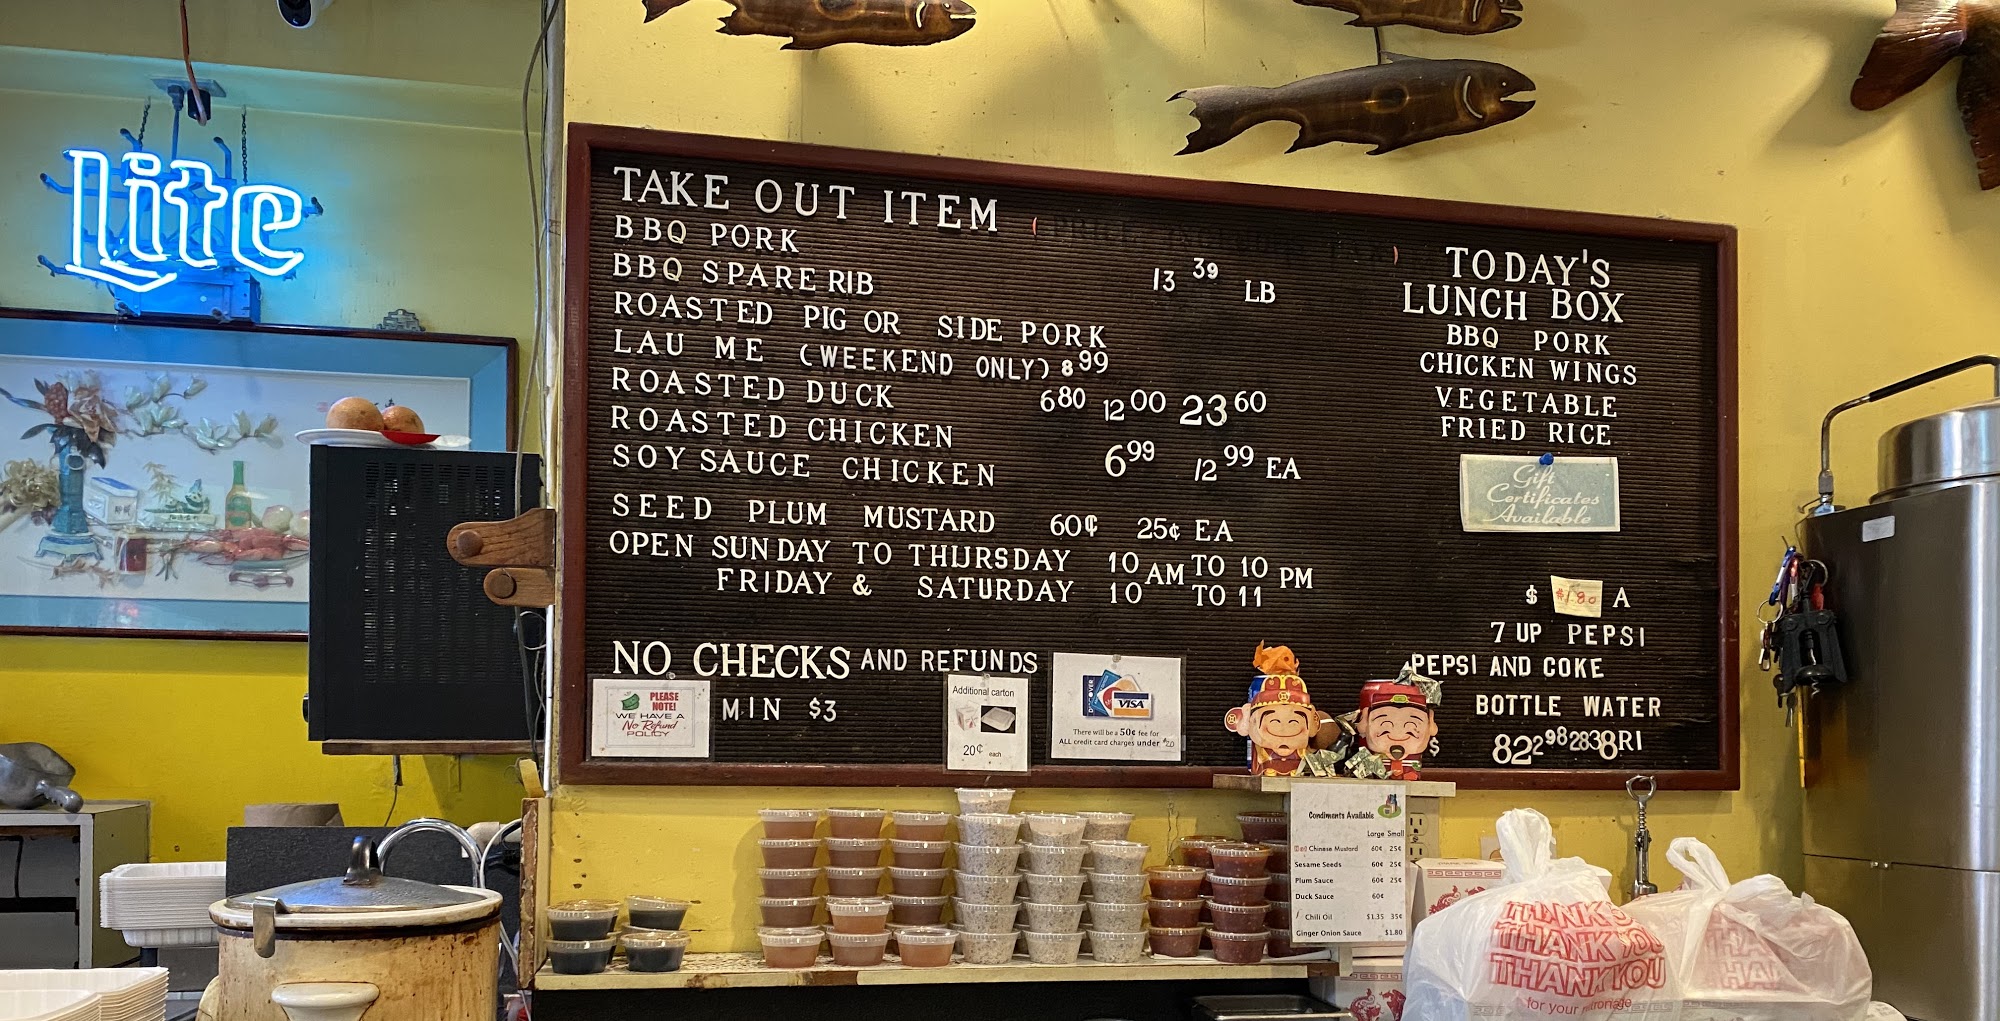 Lite
TAKE OUT ITEM
BBQ PORK
BBQ SPARE RIB 13 39 LB
ROASTED PIG OR SIDE PORK
LAU ME (WEEKEND ONLY) 8 99
ROASTED DUCK 6 80 12 00 23 60
ROASTED CHICKEN
SOY SAUCE CHICKEN 6 99 12 99 EA
SEED PLUM MUSTARD 60¢ 25¢ EA
OPEN SUNDAY TO THURSDAY 10 AM TO 10 PM
FRIDAY & SATURDAY 10 TO 11
NO CHECKS AND REFUNDS
MIN $3
PLEASE
NOTE!
WE HAVE A
No Refund
POLICY
Additional carton
20¢ each
DISCOVER
VISA
There will be a 50¢ fee for
ALL credit card charges under
TODAY'S
LUNCH BOX
BBQ PORK
CHICKEN WINGS
VEGETABLE
FRIED RICE
Gift
Certificates
Available
$ $1.80 A
7 UP PEPSI
PEPSI AND COKE
BOTTLE WATER
$ 822982838RI
Condiments Available
Large Small
Chinese Mustard 60¢ 25¢
Sesame Seeds 60¢ 25¢
Plum Sauce 60¢ 25¢
Duck Sauce 60¢
Chili Oil $1.35 35¢
Ginger Onion Sauce $1.80
THANK YOU
THANK YOU
THANK YOU
for your patronage